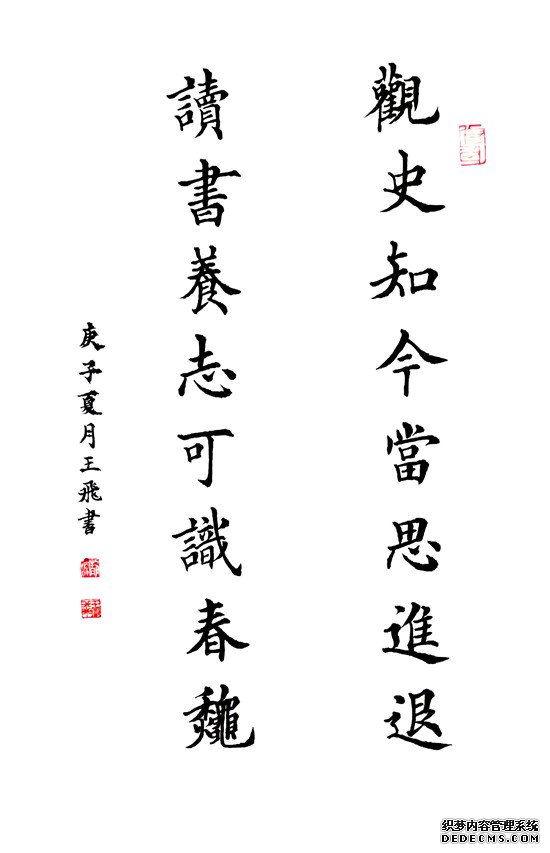 觀史知今當思進退
讀書養志可識春龝
庚子夏月王飛書
织梦内容管理系统
DEDECMS.COM